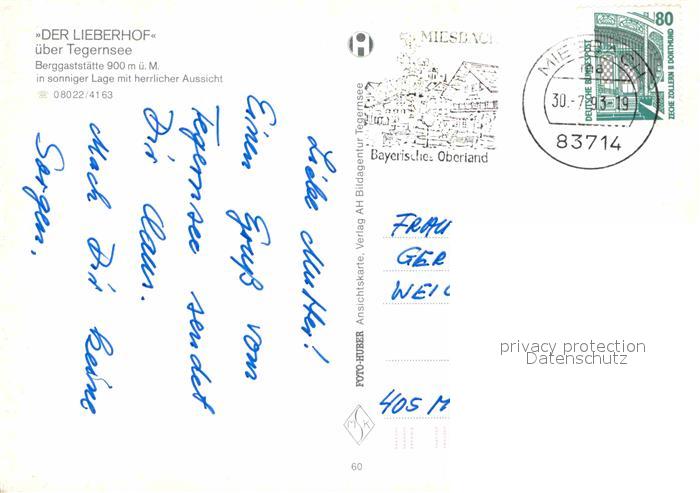 »DER LIEBERHOF«
über Tegernsee
Berggaststätte 900 m ü. M.
in sonniger Lage mit herrlicher Aussicht
☏ 08022/4163
Liebe Mutter!
Einen Gruß vom
Tegernsee sendet
Dir Claus.
Mach Dir keine
Sorgen.
FOTO-HUBER Ansichtskarte, Verlag AH Bildagentur Tegernsee
60
MIESBACH
Bayerisches Oberland
MIESBACH
30.-7.93-19
83714
80
DEUTSCHE BUNDESPOST
ZECHE ZOLLERN II DORTMUND
FRAU
GER
WEI
405 M
privacy protection
Datenschutz